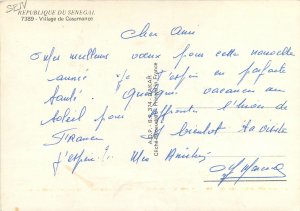 SEN
REPUBLIQUE DU SENEGAL
7389 - Village de Casamance
Cher Ami
meilleurs voeux pour cette nouvelle
année je t'espère en parfaite
Santé Quelques vacances au
Soleil pour affronter l'hiver de
France bientôt ta visite
j'espère !.. Mes Amitiés
A.G.P. - B.P. 314 - DAKAR